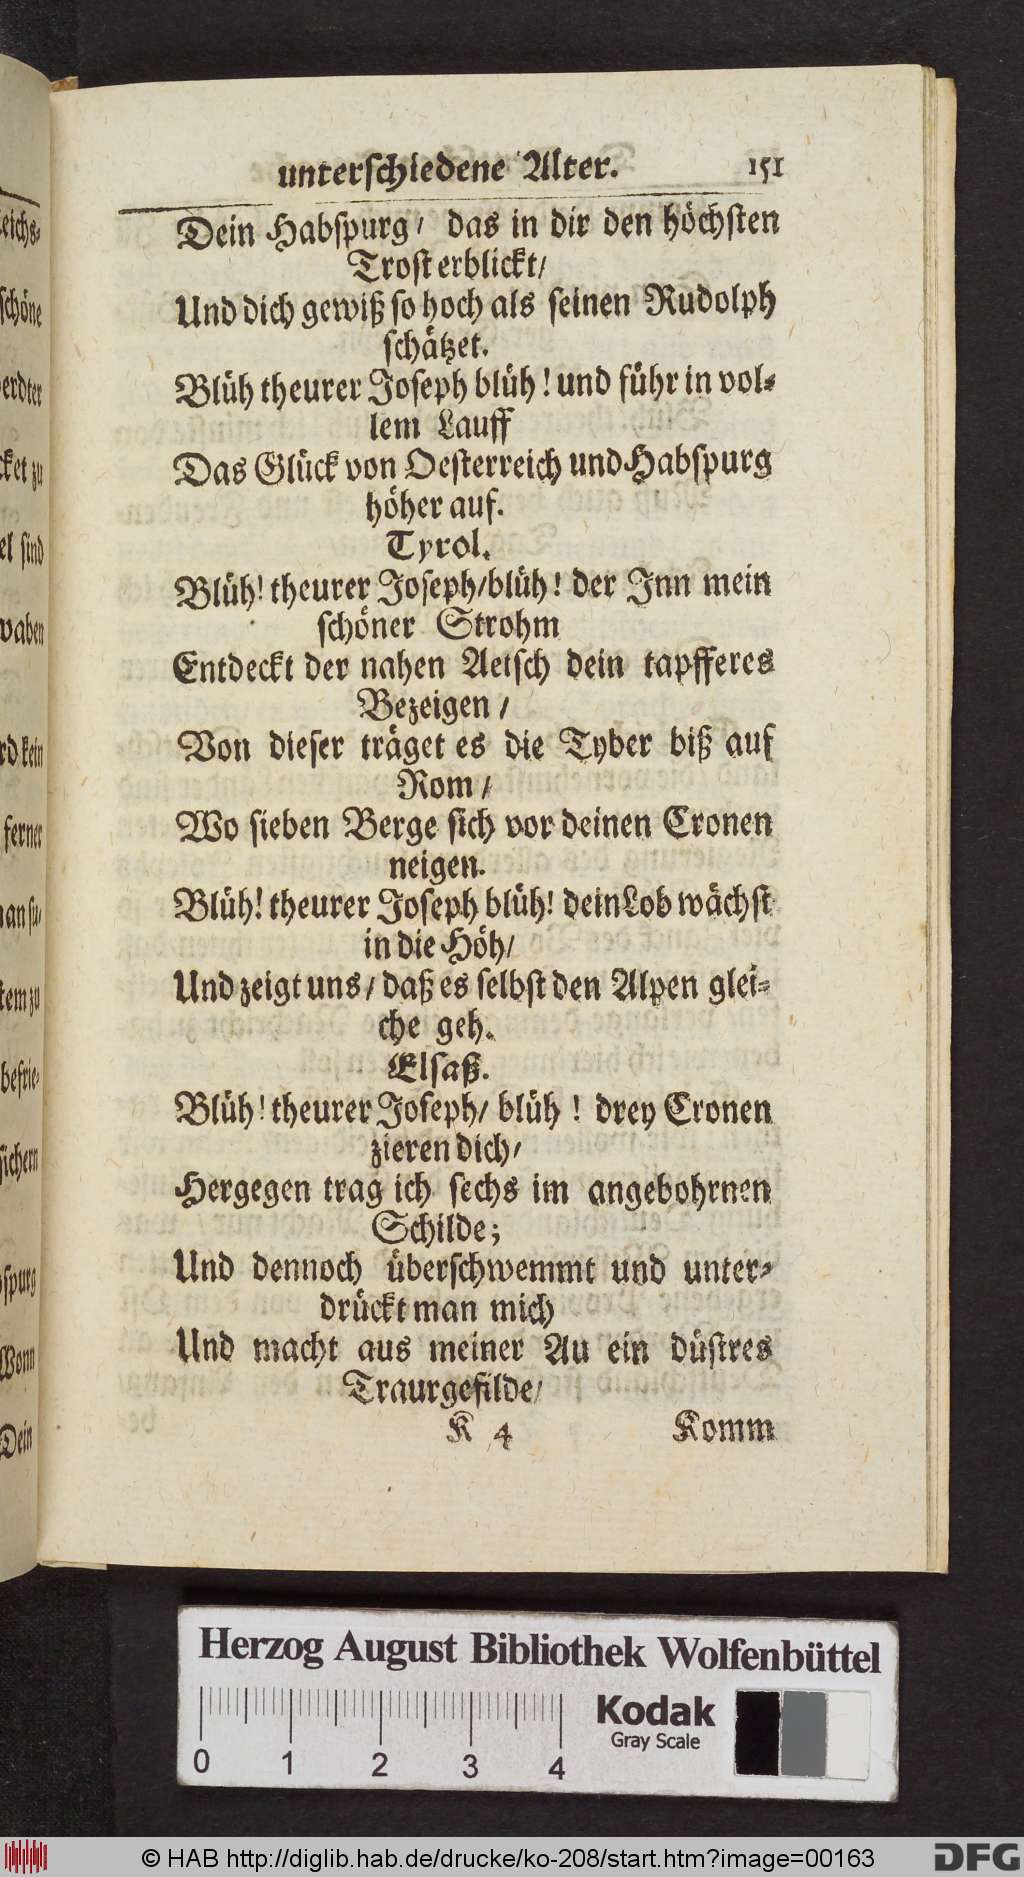 unterschiedene Alter. 151
Dein Habspurg/ das in dir den höchsten
Trost erblickt/
Und dich gewiß so hoch als seinen Rudolph
schätzet.
Blüh theurer Joseph blüh! und führ in vol-
lem Lauff
Das Glück von Oesterreich und Habspurg
höher auf.
Tyrol.
Blüh! theurer Joseph/blüh! der Inn mein
schöner Strohm
Entdeckt der nahen Aetsch dein tapfferes
Bezeigen/
Von dieser träget es die Tyber biß auf
Rom/
Wo sieben Berge sich vor deinen Cronen
neigen.
Blüh! theurer Joseph blüh! dein Lob wächst
in die Höh/
Und zeigt uns/ daß es selbst den Alpen glei-
che geh.
Elsaß.
Blüh! theurer Joseph/ blüh! drey Cronen
zieren dich/
Hergegen trag ich sechs im angebohrnen
Schilde;
Und dennoch überschwemmt und unter-
drückt man mich
Und macht aus meiner Au ein düstres
Traurgefilde/
K 4 Komm
schöne
erdter
cket zu
el sind
waben
rd kein
ferner
man su-
tem zu
befrie-
sichern
spurg
Wonn
Dein
Herzog August Bibliothek Wolfenbüttel
Kodak
Gray Scale
0 1 2 3 4
© HAB http://diglib.hab.de/drucke/ko-208/start.htm?image=00163
DFG